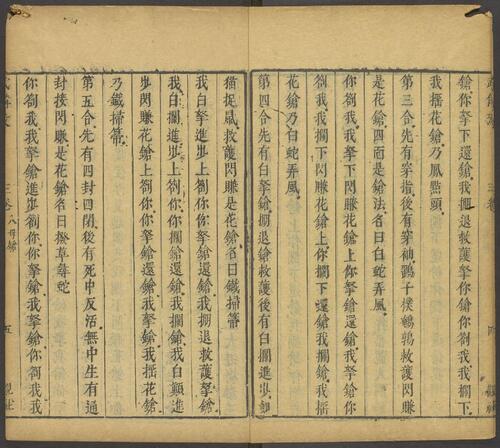 鎗你拏下還鎗我攔退救護拏你鎗你劄我我攔下
我搖花鎗乃鳳點頭
第三合先有穿指後有穿袖鷂子樸鵪鶉救護閃賺
是花鎗四面是鎗法名曰白蛇弄風
你劄我我拏下閃賺花鎗上你拏鎗還鎗我拏鎗你
劄我我攔下閃賺花鎗上你攔下還鎗我攔鎗我搖
花鎗乃白蛇弄風
第四合先有白拏鎗攔退鎗救護後有白攔進步如
猫捉鼠救護閃賺是花鎗名曰鐵掃箒
我白拏進步上劄你你拏鎗還鎗我攔退救護拏鎗
我白攔進步上劄你你攔鎗還鎗我攔鎗我白顛進
步閃賺花鎗上劄你你拏鎗還鎗我拏鎗我搖花鎗
乃鐵掃箒
第五合先有四封四閉後有死中反活無中生有通
封接閃賺是花鎗名曰撥草尋蛇
你劄我我拏鎗進步劄你你拏鎗我拏鎗你劄我我
三卷 八母鎗 五